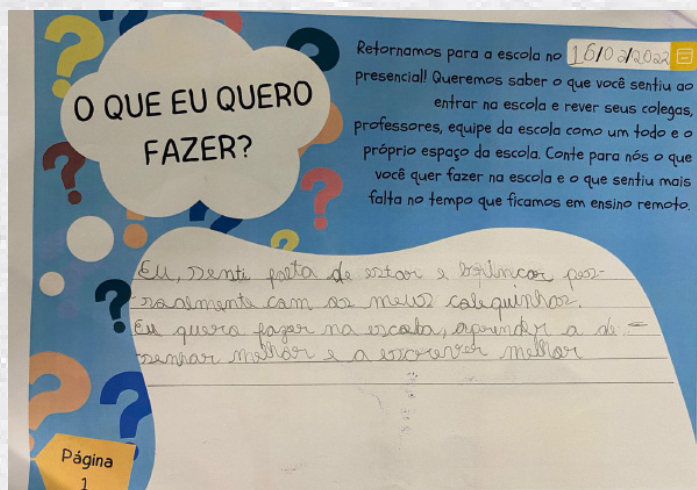 O QUE EU QUERO
FAZER?
Retornamos para a escola no 16/02/2022
presencial! Queremos saber o que você sentiu ao
entrar na escola e rever seus colegas,
professores, equipe da escola como um todo e o
próprio espaço da escola. Conte para nós o que
você quer fazer na escola e o que sentiu mais
falta no tempo que ficamos em ensino remoto.
Eu, senti falta de estar e brincar pes-
soalmente com os meus coleguinhas.
Eu quero fazer na escola, aprender a de-
senhar melhor e a escrever melhor
Página
1